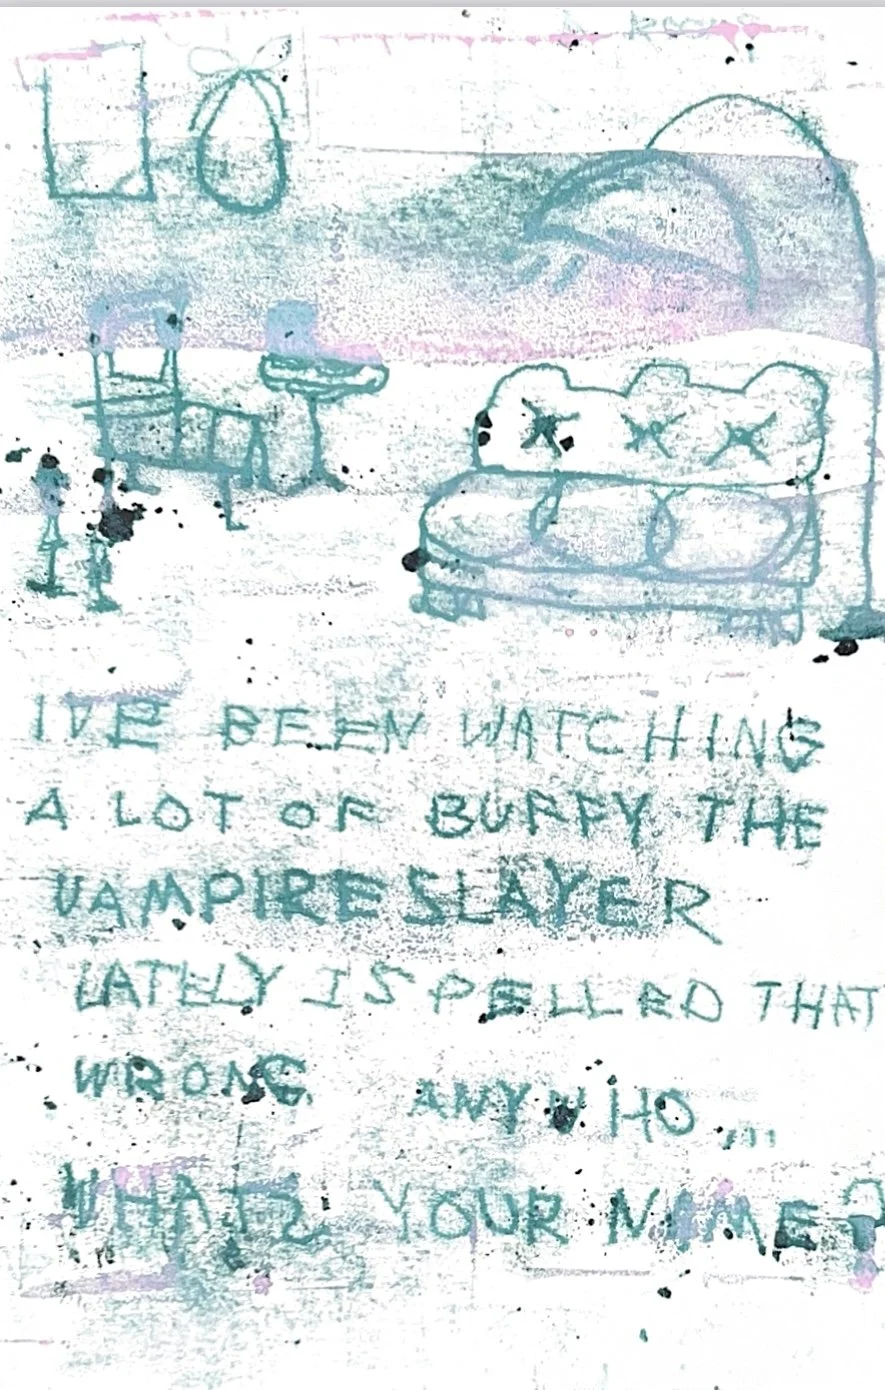 I'VE BEEN WATCHING
A LOT OF BUFFY THE
VAMPIRE SLAYER
LATELY I SPELLED THAT
WRONG. ANYWHO...
WHAT'S YOUR NAME?